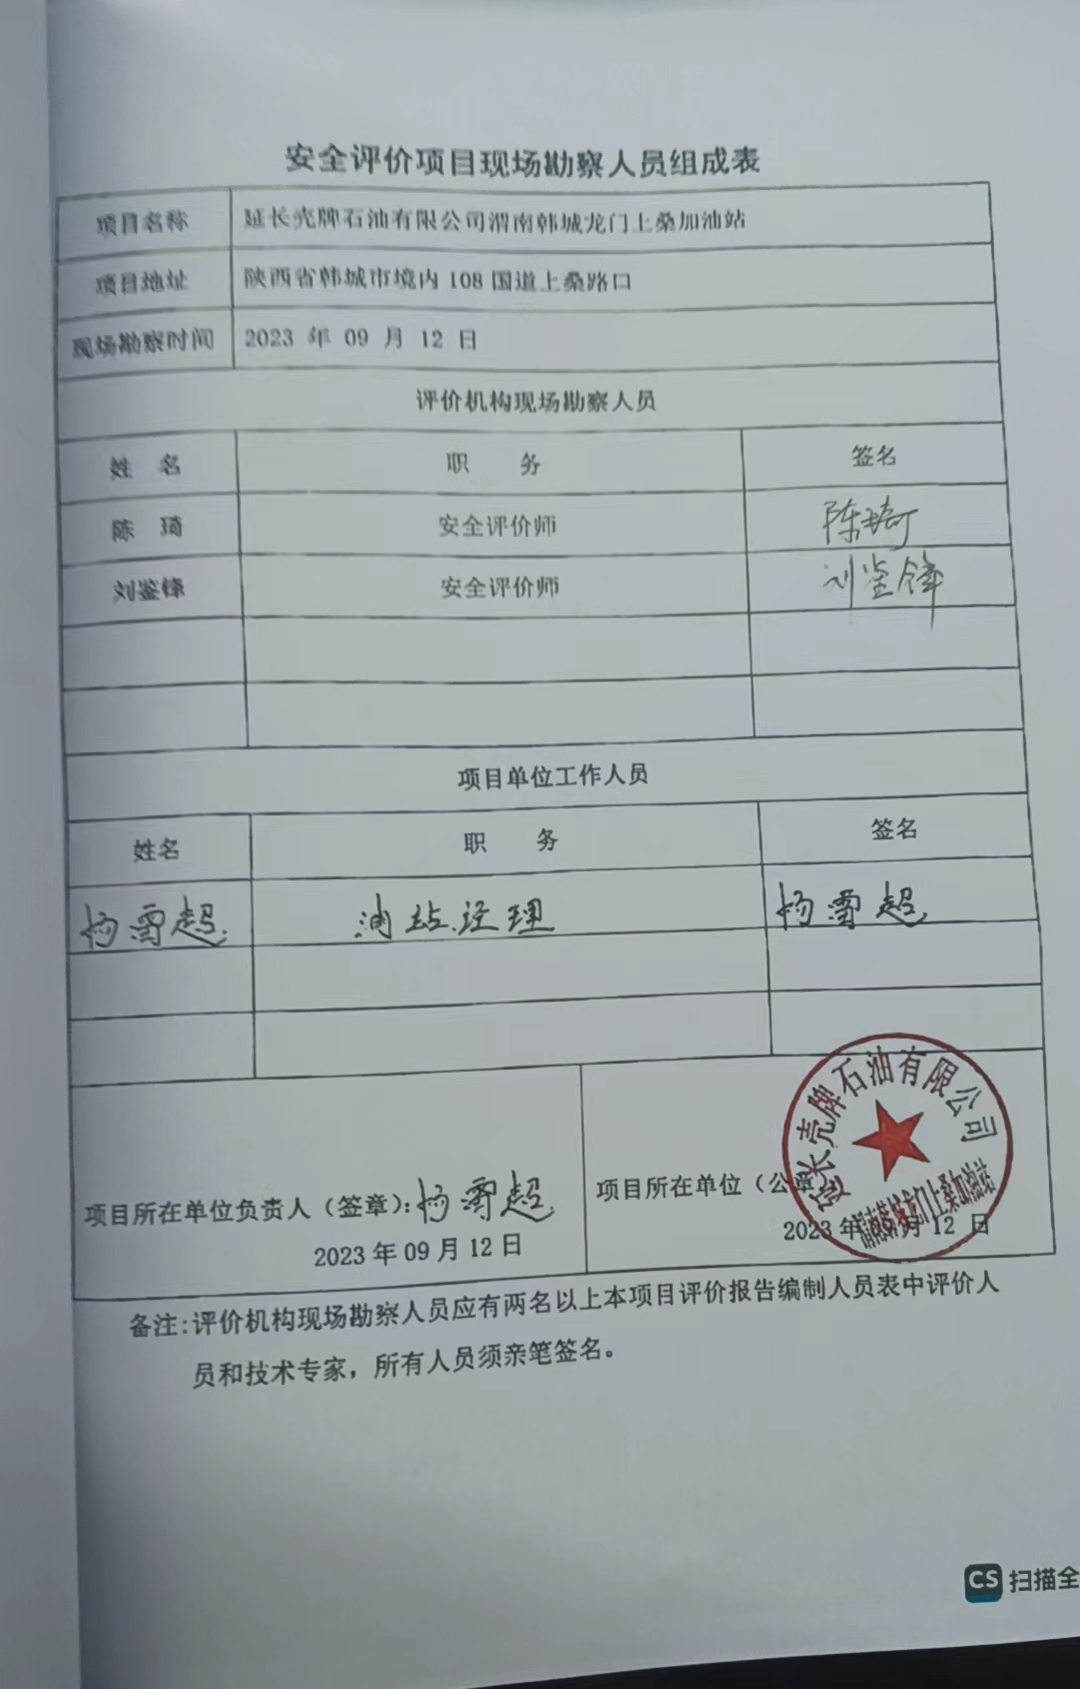 安全评价项目现场勘察人员组成表
项目名称 延长壳牌石油有限公司渭南韩城龙门上桑加油站
项目地址 陕西省韩城市境内 108 国道上桑路口
现场勘察时间 2023 年 09 月 12 日
评价机构现场勘察人员
姓 名 职 务 签名
陈 琦 安全评价师 陈琦
刘鉴锋 安全评价师 刘鉴锋
项目单位工作人员
姓名 职 务 签名
杨雪超 油站经理 杨雪超
延长壳牌石油有限公司
渭南韩城龙门上桑加油站
项目所在单位负责人（签章）：杨雪超
项目所在单位（公章）：
2023 年 09 月 12 日
2023 年 09 月 12 日
备注：评价机构现场勘察人员应有两名以上本项目评价报告编制人员表中评价人
员和技术专家，所有人员须亲笔签名。
CS 扫描全